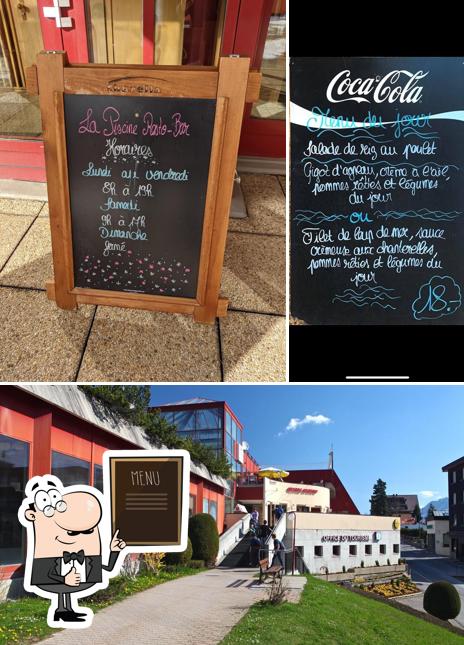 La Piscine Resto-Bar
Horaires
Lundi au vendredi
8h à 19h
Samedi
9h à 17h
Dimanche
fermé
Coca-Cola
Menu du jour
Salade de riz au poulet
Gigot d'agneau, crème à l'ail,
pommes röties et légumes
du jour
ou
Filet de loup de mer, sauce
crémeuse aux chanterelles,
pommes röties et légumes du
jour
18.-
MENU
OFFICE DU TOURISME